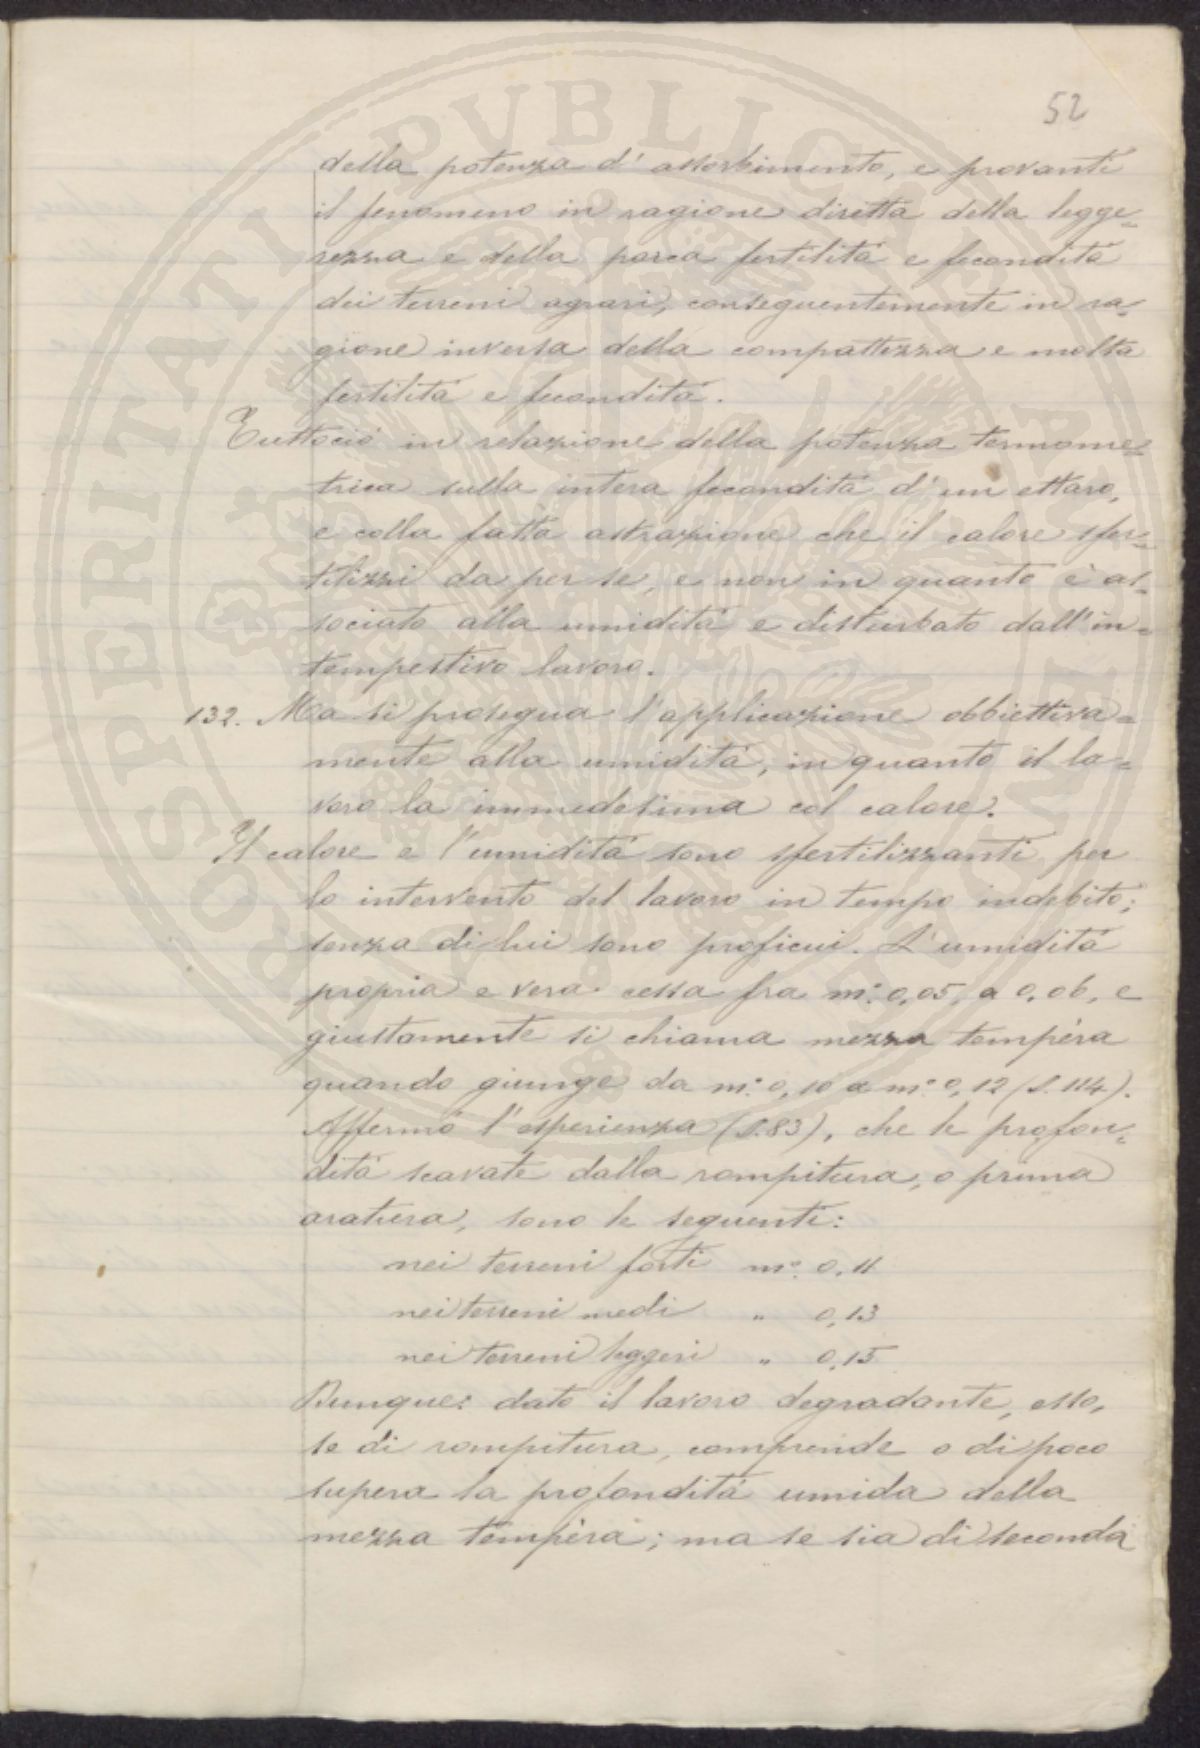 52
della potenza d'assorbimento, e provanti
il fenomeno in ragione diretta della legge=
rezza e della parca fertilità e fecondità
dei terreni agrari, conseguentemente in ra=
gione inversa della compattezza e molta
fertilità e fecondità.
Tuttociò in relazione della potenza termome=
trica sulla intera fecondità d'un ettaro,
e colla fatta astrazione che il calore sfer=
tilizzi da per se, e non in quanto è as=
sociato alla umidità e disturbato dall'in=
tempestivo lavoro.
132. Ma si prosegua l'applicazione obbiettiva=
mente alla umidità, in quanto il la=
voro la immedesima col calore.
Il calore e l'umidità sono sfertilizzanti per
lo intervento del lavoro in tempo indebito;
senza di lui sono proficui. L'umidità
propria e vera cessa fra m.º 0,05, a 0,06, e
giustamente si chiama mezza tempèra
quando giunge da m.º 0,10 a m.º 0,12 (S. 114).
Affermò l'esperienza (S. 83), che le profon=
dità scavate dalla rompitura, o prima
aratura, sono le seguenti:
nei terreni forti m.º 0,11
nei terreni medi " 0,13
nei terreni leggeri " 0,15
Dunque: dato il lavoro degradante, esso,
se di rompitura, comprende o di poco
supera la profondità umida della
mezza tempèra; ma se sia di seconda
PROSPERITATI PUBLICAE AUGENDAE